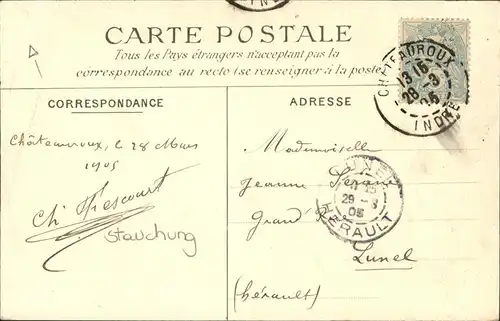 CARTE POSTALE
Tous les Pays étrangers n'acceptant pas la
correspondance au recto (se renseigner à la poste)
CORRESPONDANCE
ADRESSE
CHATEAUROUX
13 15
28 -3
05
INDRE
INDRE
Châteauroux, le 28 Mars
1905
Ch
Stauchung
Mademoiselle
Jeanne
Grand'
Lunel
(hérault)
LUNEL
29 -3
05
HERAULT